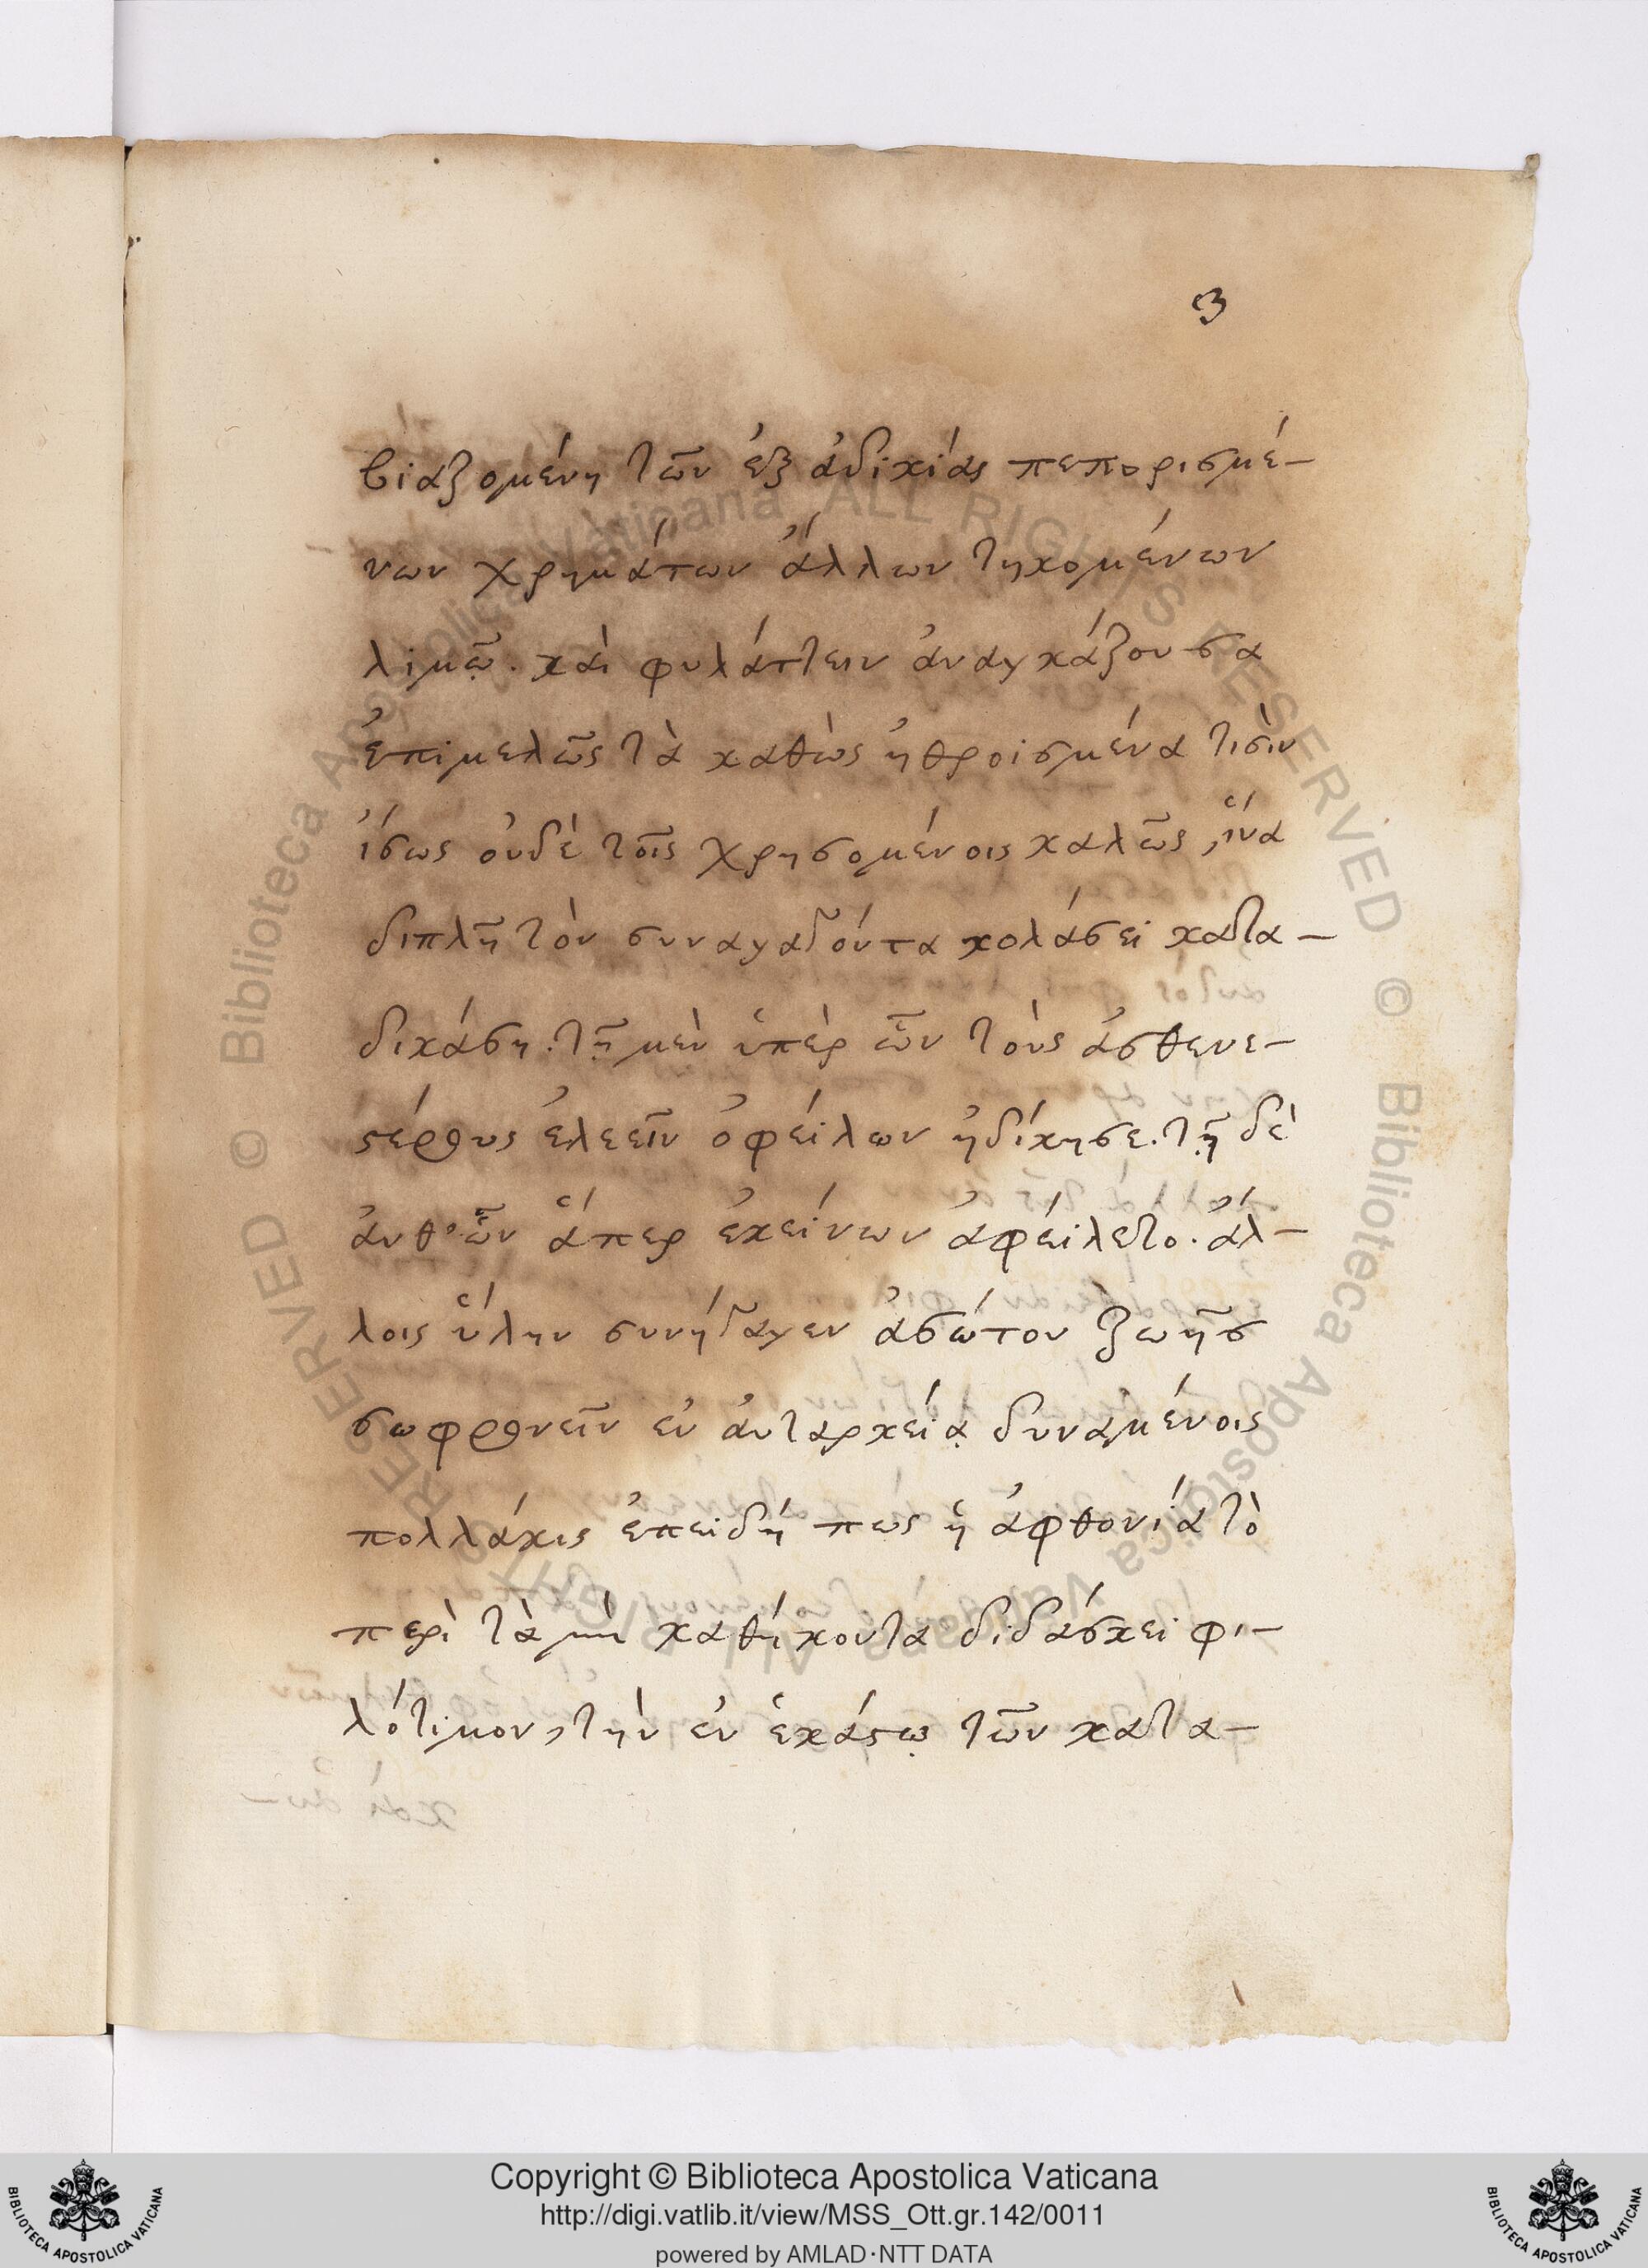 3
βιαζομένη τῶν ἐξ ἀδικίας πεπορισμέ-
νων χρημάτων ἄλλων τηκομένων
λιμῷ. καὶ φυλάττειν ἀναγκάζουσα
ἐπιμελῶς τὰ καθὼς ἠθροισμένα τισὶν
ἴσως οὐδὲ τοῖς χρησομένοις καλῶς, ἵνα
διπλῆ τὸν συναγαγόντα κολάσει κατα-
δικάση. τῆ μὲν ὑπὲρ ὧν τοὺς ἀσθενε-
στέρους ἐλεεῖν ὀφείλων ἠδίκησε. τῇ δὲ
ἀνθ' ὧν ἅπερ ἐκείνων ἀφείλετο. ἄλ-
λοις ὕλην συνήγαγεν ἀσώτου ζωῆς
σωφρονεῖν ἐν αὐταρκείᾳ δυναμένοις
πολλάκις ἐπειδή πως ἡ ἀφθονία τὸ
περὶ τὰ μὴ καθήκοντα διδάσκει φι-
λότιμον, τὴν ἐν ἑκάστῳ τῶν κατα-
© Biblioteca Apostolica Vaticana ALL RIGHTS RESERVED
© Biblioteca Apostolica Vaticana ALL RIGHTS RESERVED
BIBLIOTECA APOSTOLICA VATICANA
Copyright © Biblioteca Apostolica Vaticana
http://digi.vatlib.it/view/MSS_Ott.gr.142/0011
powered by AMLAD·NTT DATA
BIBLIOTECA APOSTOLICA VATICANA